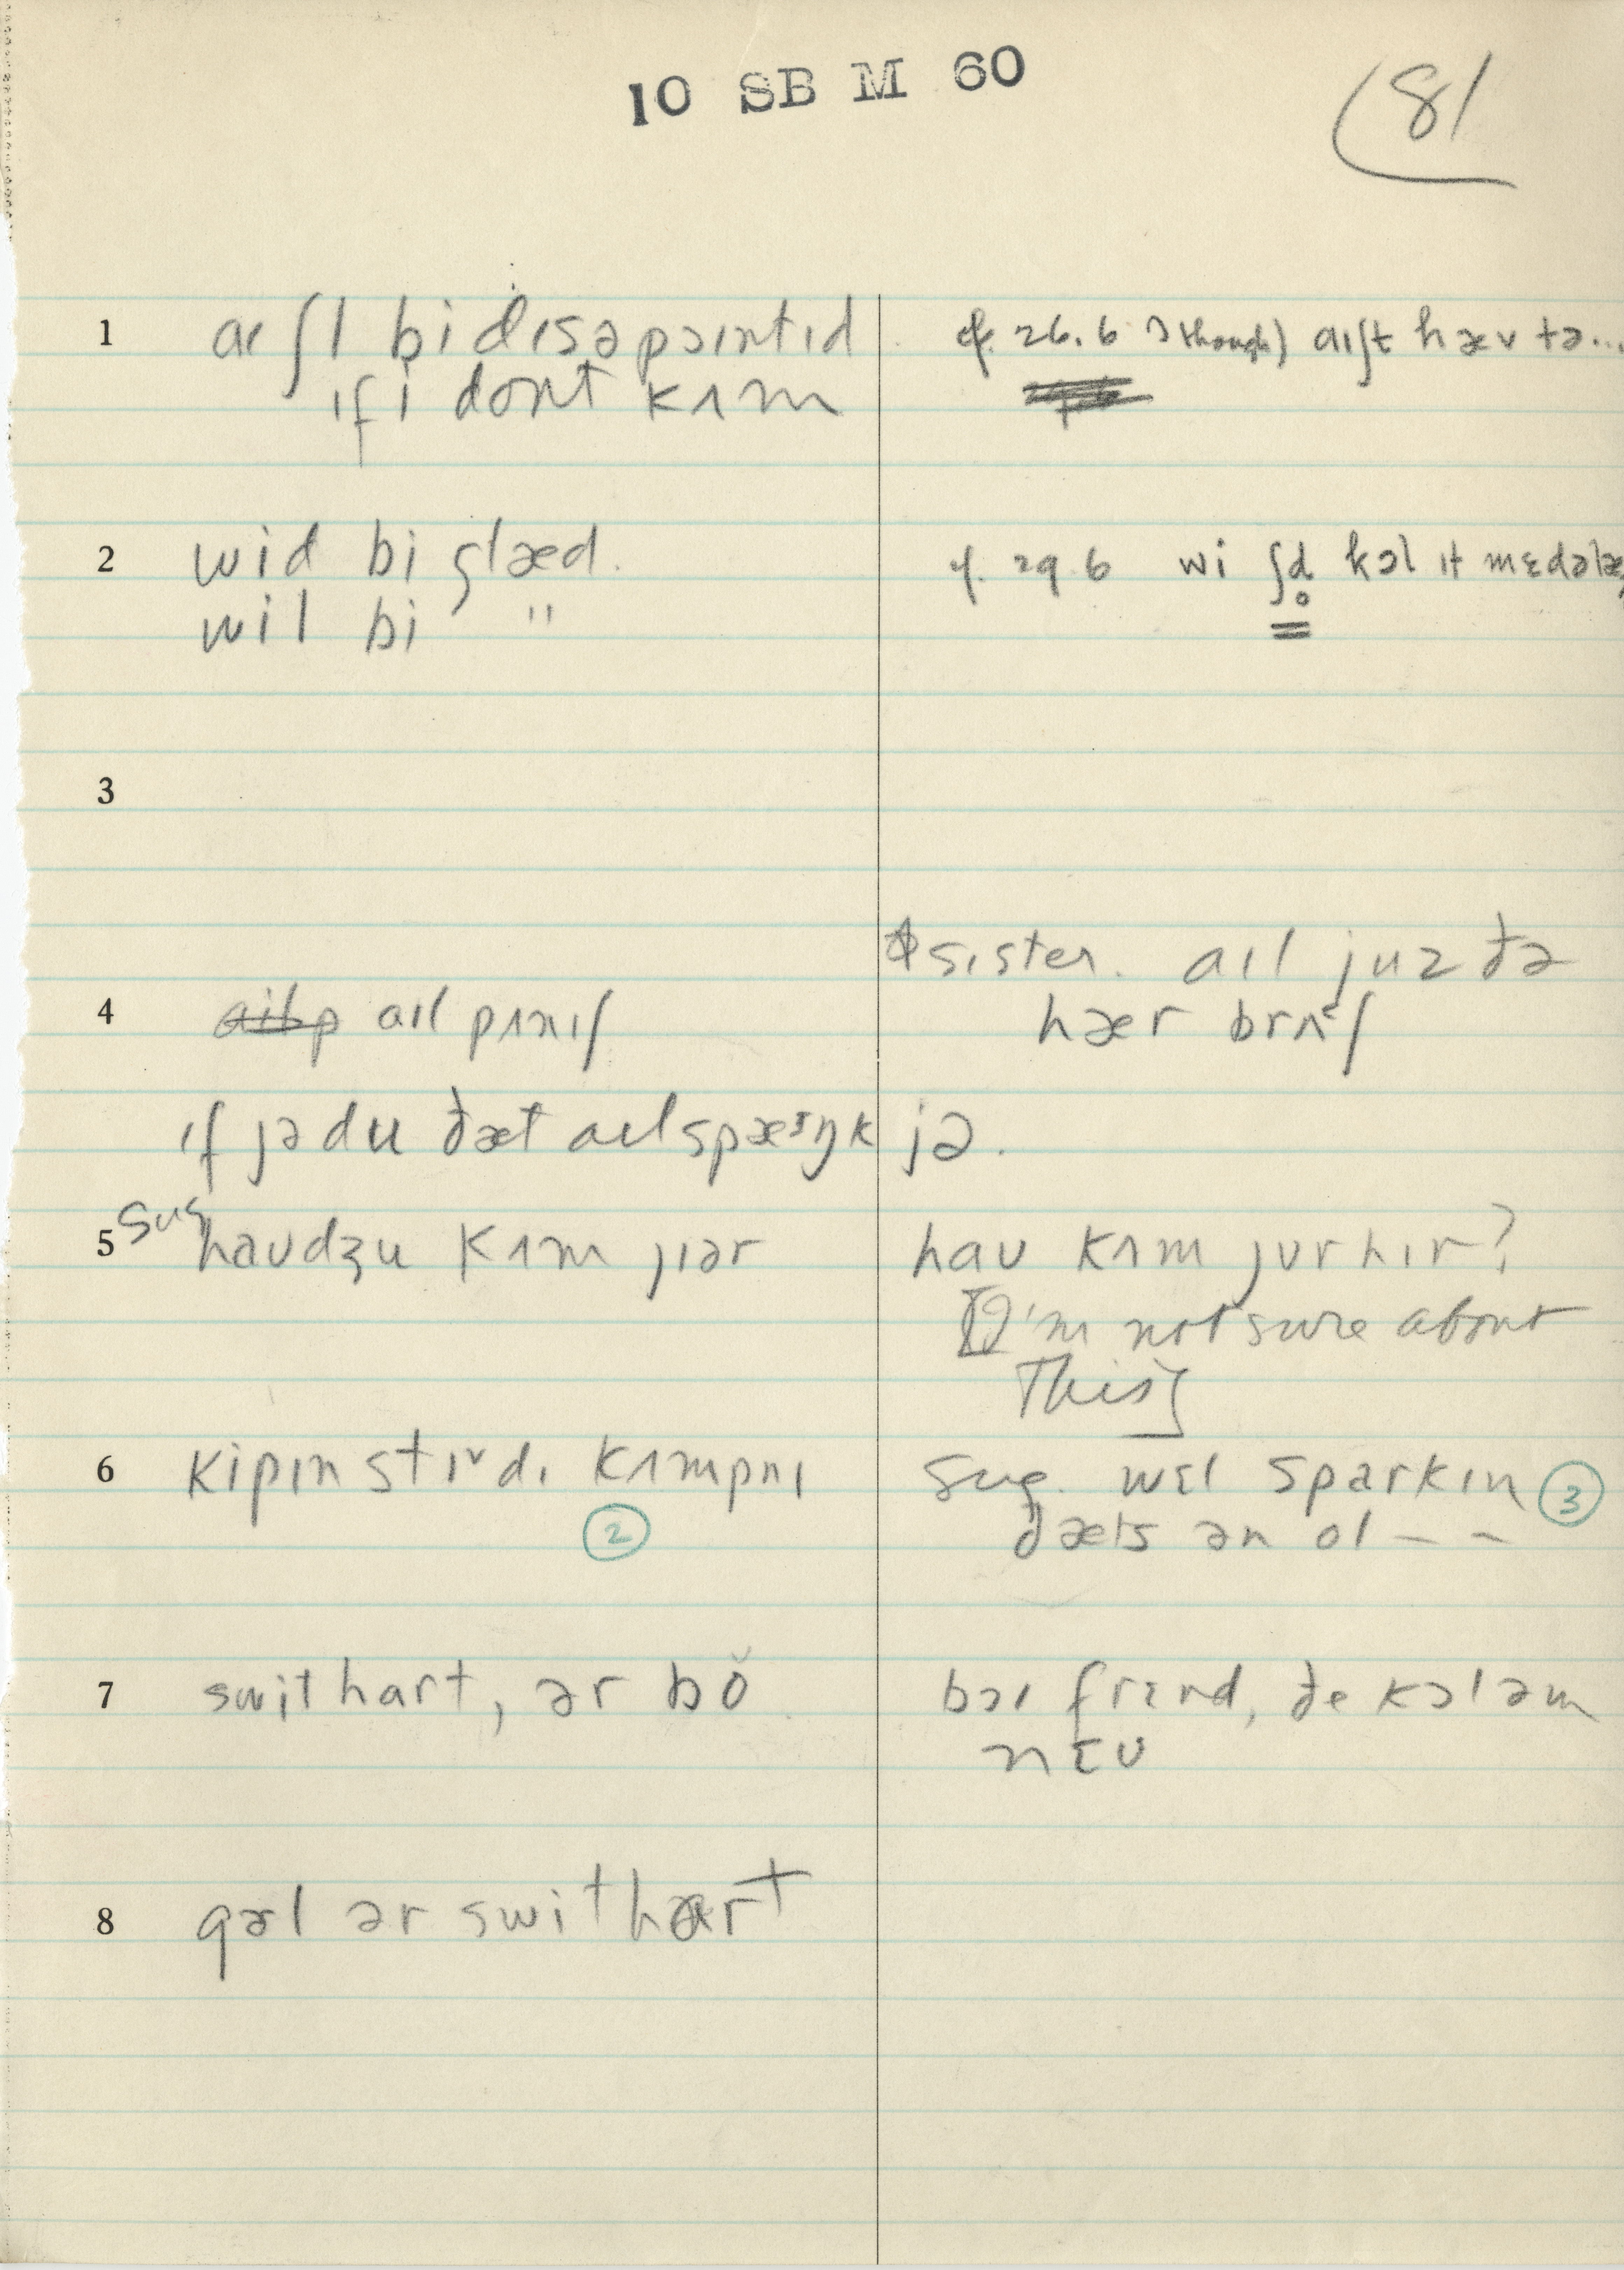 10 SB M 60
81
1 aɪ ʃl bi dɪsəpɔɪntɪd
cf. 26.6 though) aɪʃt hæv tə...
ɪf i dont kʌm
2 wid bi glæd.
cf. 29.6 wi ʃd kɔl ɪt mɛdəlæ
wil bi "
3
sɪster. aɪl juz ðə
4 aɪl pʌnɪʃ
hær brʌʃ
ɪf jə du ðæt aɪl spæŋk jə.
5 sug haudʒu kʌm jɪər
hau kʌm jʊr hɪr?
[I'm not sure about
This]
6 kipɪn stɪdɪ kʌmpnɪ
sug. wɛl sparkɪn 3
2
ðæts ən ol – –
7 swit hart, ər bŏ
bɔɪ frɛnd, ðe kɔl əm
nɛʊ
8 gəl ər swit hart